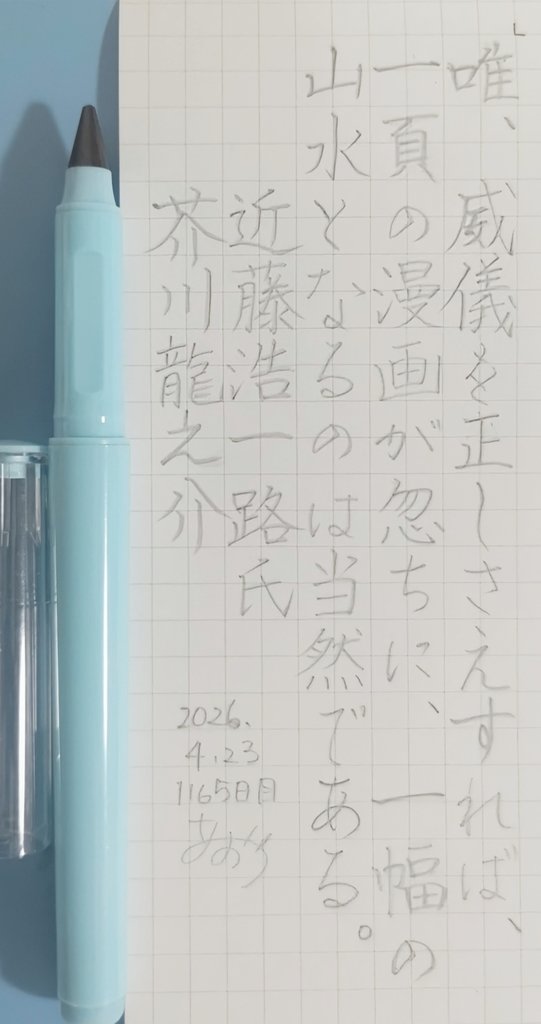 唯、威儀を正しさえすれば、
一頁の漫画が忽ちに、一幅の
山水となるのは当然である。
近藤浩一路氏
芥川龍之介
2026.
4.23
1165日目